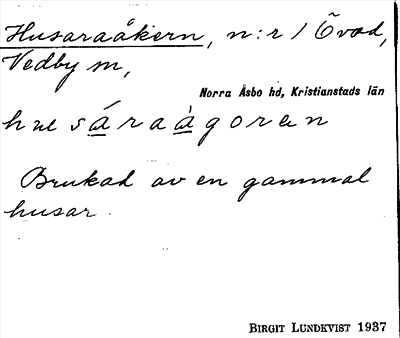 Husaraåkern, n:r 1 Övad,
Vedby sn,
Norra Åsbo hd, Kristianstads län
Brukad av en gammal
husar.
BIRGIT LUNDKVIST 1937